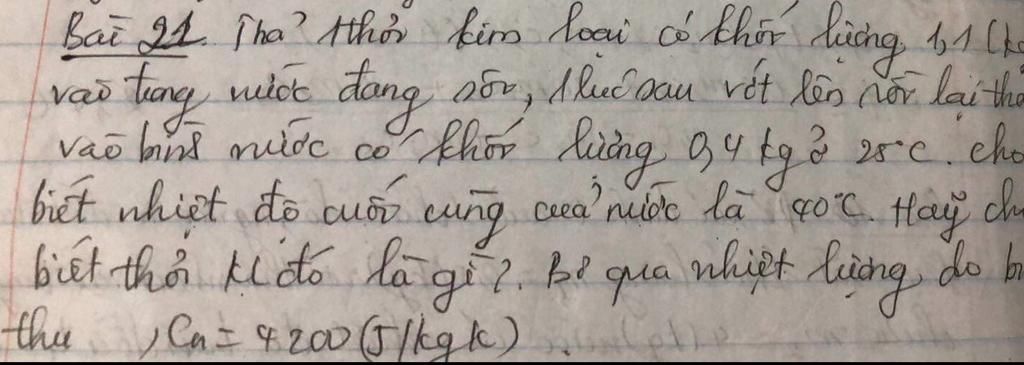 Bài 21. Thả thỏi kim loại có khối lượng 1,1 (kg
vào trong nước đang sôi, 1 lúc sau vớt lên rồi lại thả
vào bình nước có khối lượng 0,4 kg ở 25°C. cho
biết nhiệt độ cuối cùng của nước là 40°C. Hãy ch
biết thỏi KL đó là gì?. Bỏ qua nhiệt lượng do b
thu , Cn = 4200 (J/kgK)